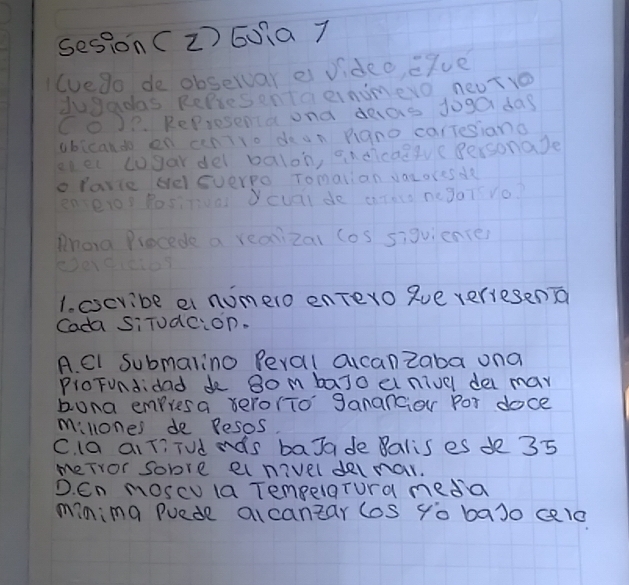 Sesión (2) Guia 7
Luego de observar el video, ¿que
Jugadas Representa el número neutro
(0)? Representa una de las Jugadas
ubicando en centro de un Plano cartesiano
el lugar del balón, indica que Personaje
o Parte del Cuerpo Tomarian valores de
enteros Positivos y cual de negativo?
Ahora Procede a realizar los siguientes
ejercicios
1. escribe el número entero que rerresenta
cada situación.
A. El submarino Peral alcanzaba una
Profundidad de 80m bajo el nivel del mar
b una empresa reportó ganancias Por doce
millones de Pesos.
C. la altitud más baja de Paris es de 35
metros sobre el nivel del mar.
D. En moscu la Temperatura media
mínima Puede alcanzar los 40 bajo cero